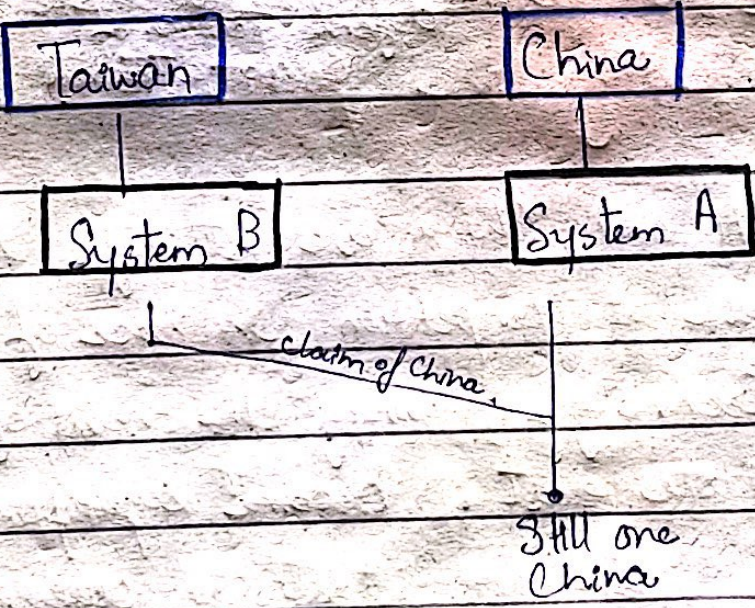 Taiwan
China
System B
System A
claim of China.
Still one
China